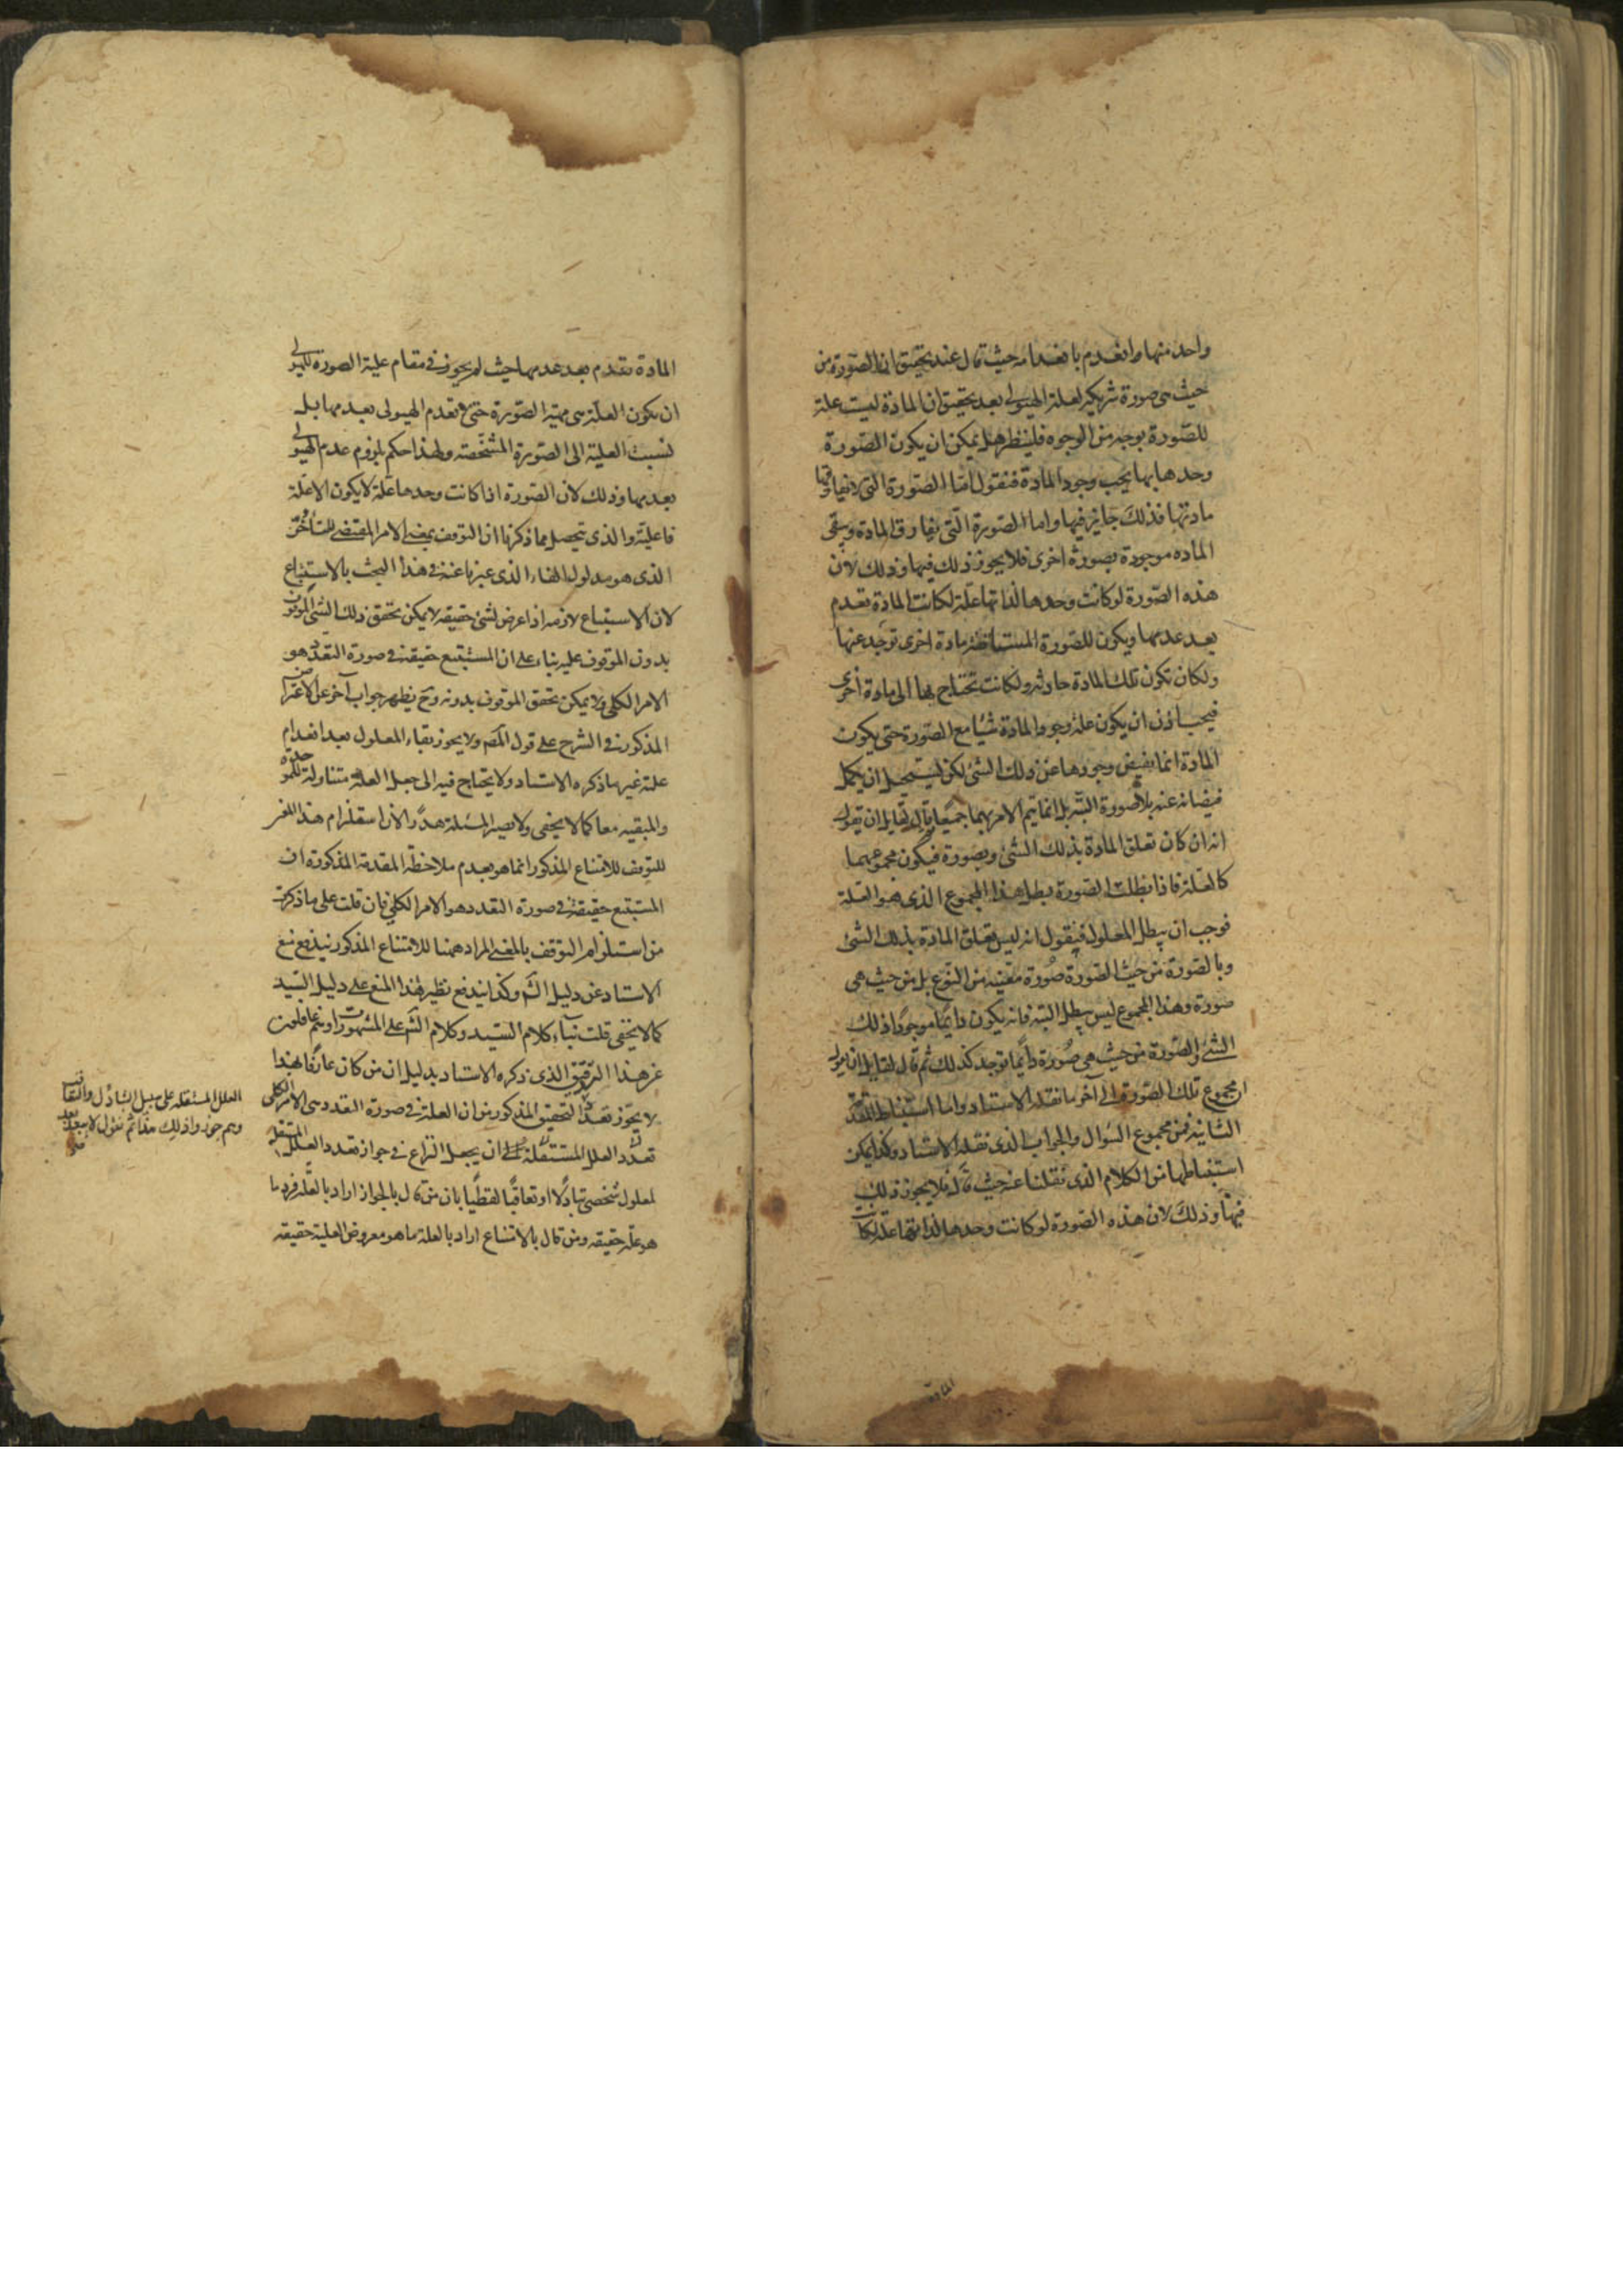 واحد منها وانعدم بانعدامه حيث قال عند تحقيق ان الصورة من
حيث هى صورة شريكة لعلة الهيولى بعد تحقيق ان المادة ليست علة
للصورة بوجه من الوجوه فلينظر هل يمكن ان يكون الصورة
وحدها بها يجب وجود المادة فنقول اما الصورة التى لا يفارقها
مادتها فذلك جايز فيها واما الصورة التى يفارق المادة ويبقى
المادة موجودة بصورة اخرى فلا يجوز ذلك فيها وذلك لان
هذه الصورة لو كانت وحدها لذاتها علة لكانت المادة تعدم
بعدمها ويكون للصورة المستأنفة مادة اخرى توجد عنها
ولكان تكون تلك المادة حادثة ولكانت تحتاج بها الى مادة اخرى
فيجب اذن ان يكون علة وجود المادة شيئا مع الصورة حتى يكون
المادة انما يفيض وجودها عن ذلك الشئ لكن يستحيل ان يكمل
فيضانه عنه بلا صورة البتة بل انما يتم الامر بهما جميعا لقايل ان يقول
انه ان كان تعلق المادة بذلك الشئ وبصورة فيكون مجموعهما
كالعلة فاذا بطلت الصورة بطل هذا المجموع الذى هو العلة
فوجب ان يبطل المعلول فنقول انه ليس تعلق المادة بذلك الشئ
وبالصورة من حيث الصورة صورة معينة من النوع بل من حيث هى
صورة وهذا المجموع ليس يبطل البتة فانه يكون دائما موجودا ذلك
الشئ والصورة من حيث هى صورة دائما توجد كذلك ثم قال لقايل ان يقول
ان مجموع تلك الصورة الى آخر ما نقله الاستاد واما استنباط المقدمة
الثانية فمن مجموع السوال والجواب الذى نقله الاستاد وكذا يمكن
استنباطها من الكلام الذى نقلنا عنه حيث قال فلا يجوز ذلك
فيها وذلك لان هذه الصورة لو كانت وحدها لذاتها علة لكانت
المادة
المادة تعدم بعدمها حيث لم يجوز فى مقام علية الصورة للهيولى
ان يكون العلة هى مهية الصورة حتى لا تعدم الهيولى بعدمها بل
نسبت العلية الى الصورة المشخصة ولهذا حكم بلزوم عدم الهيولى
بعدمها وذلك لان الصورة اذا كانت وحدها علة لا يكون الا علة
فاعلية والذى يتحصل مما ذكرنا ان التوقف بمعنى الامر المقتضى للتأخر
الذى هو مدلول الفاء الذى عبرنا عنه فى هذا البحث بالاستتباع
لان الاستتباع لازمه اذا عرض لشئ حقيقة لا يمكن تحقق ذلك الشئ الموقوف
بدون الموقوف عليه بناء على ان المستتبع حقيقة فى صورة التعدد هو
الامر الكلى ولا يمكن تحقق الموقوف بدونه وح يظهر جواب آخر على الاعتراض
المذكور فى الشرح على قول المص ولا يجوز بقاء المعلول بعد انعدام
علته غير ما ذكره الاستاد ولا يحتاج فيه الى جعل العلة متناولة للموجدة
والمبقيه معا كما لا يخفى ولا يصير المسئلة هدرا لان استلزام هذا المعنى
للتوقف للامتناع المذكور انما هو بعدم ملاحظة المقدمة المذكورة ان
المستتبع حقيقة فى صورة التعدد هو الامر الكلى فان قلت على ما ذكرت
من استلزام التوقف بالمعنى المراد ههنا للامتناع المذكور يندفع منع
الاستاد عن دليل الش وكذا يندفع نظير هذا المنع على دليل السيد
كما لا يخفى قلت بناء كلام السيد وكلام الش على المشهورات وانهما غافلون
عن هذا الدقيق الذى ذكره الاستاد بدليل ان من كان عارفا بهذا
التحقيق المذكور من ان العلة فى صورة التعدد هى الامر الكلى لا يجوز تعدد
تعدد العلل المستقلة على ان يجعل النزاع فى جواز تعدد العلل المستقلة
لمعلول شخصى تبادلا او تعاقبا لفظيا بان من قال بالجواز اراد بالعلة فرد ما
هو علة حقيقة ومن قال بالامتناع اراد بالعلة ما هو معروض العلية حقيقة
العلل المستقلة على سبيل التبادل والتعاقب
وهم جوزوا ذلك هذا ثم نقول لا يبعد